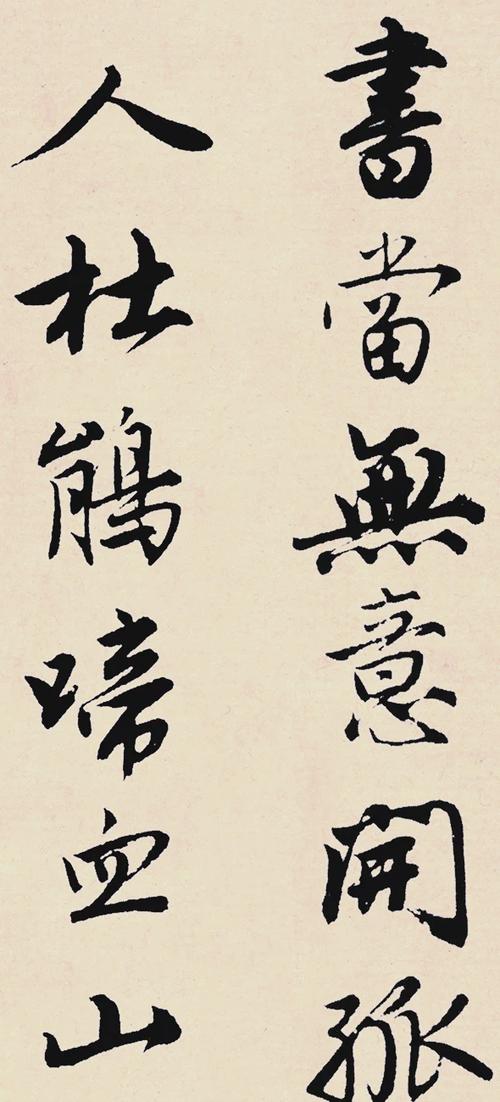 書當無意開孤
人杜鵑啼血山